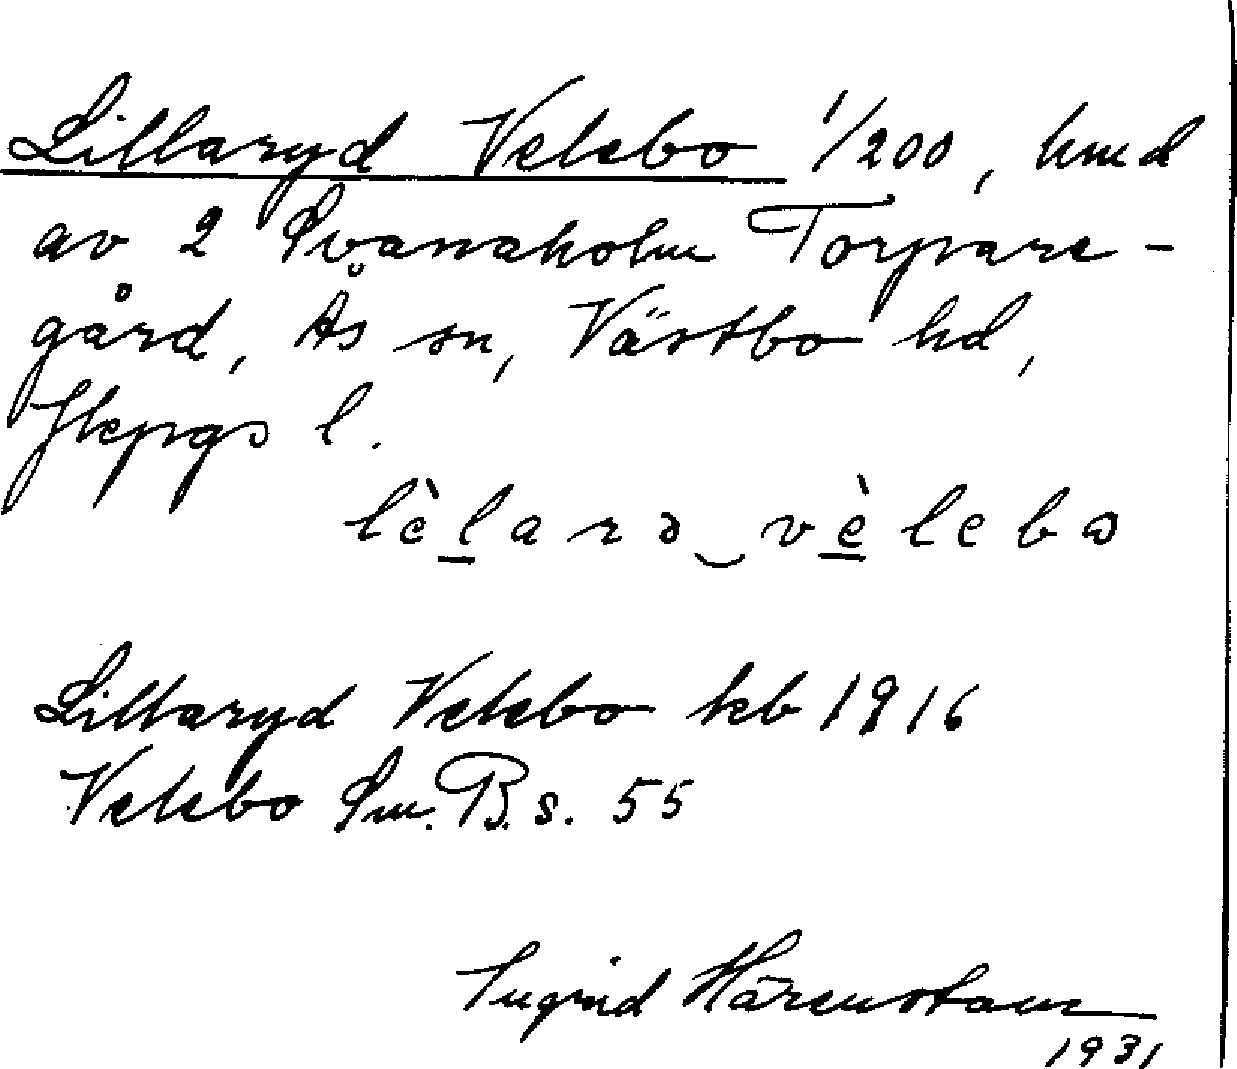 Lillaryd Velebo 1/200, hmd
av 2 Svanaholm Torpare-
gård, Ås sn, Västbo hd,
Jkpgs l.
lèlarə‿vèlebɷ
Lillaryd Velebo kb 1916
Velebo Sm. B. s. 55
Ingrid Härenstam
1931